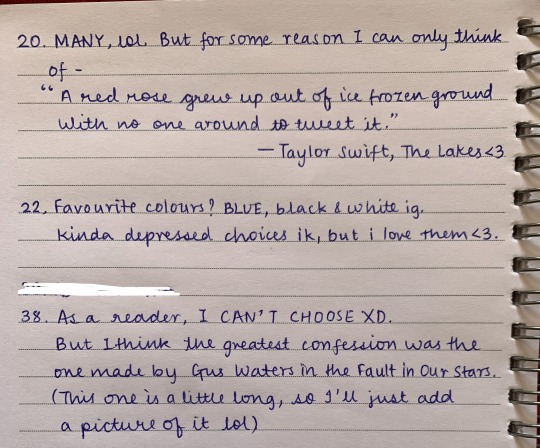 20. MANY, lol. But for some reason I can only think
of -
"A red rose grew up out of ice frozen ground
With no one around to tweet it."
— Taylor Swift, The Lakes<3
22. Favourite colours? BLUE, black & white ig.
Kinda depressed choices ik, but i love them<3.
38. As a reader, I CAN'T CHOOSE XD.
But I think the greatest confession was the
one made by Gus Waters in the Fault in Our Stars.
(This one is a little long, so I'll just add
a picture of it lol)